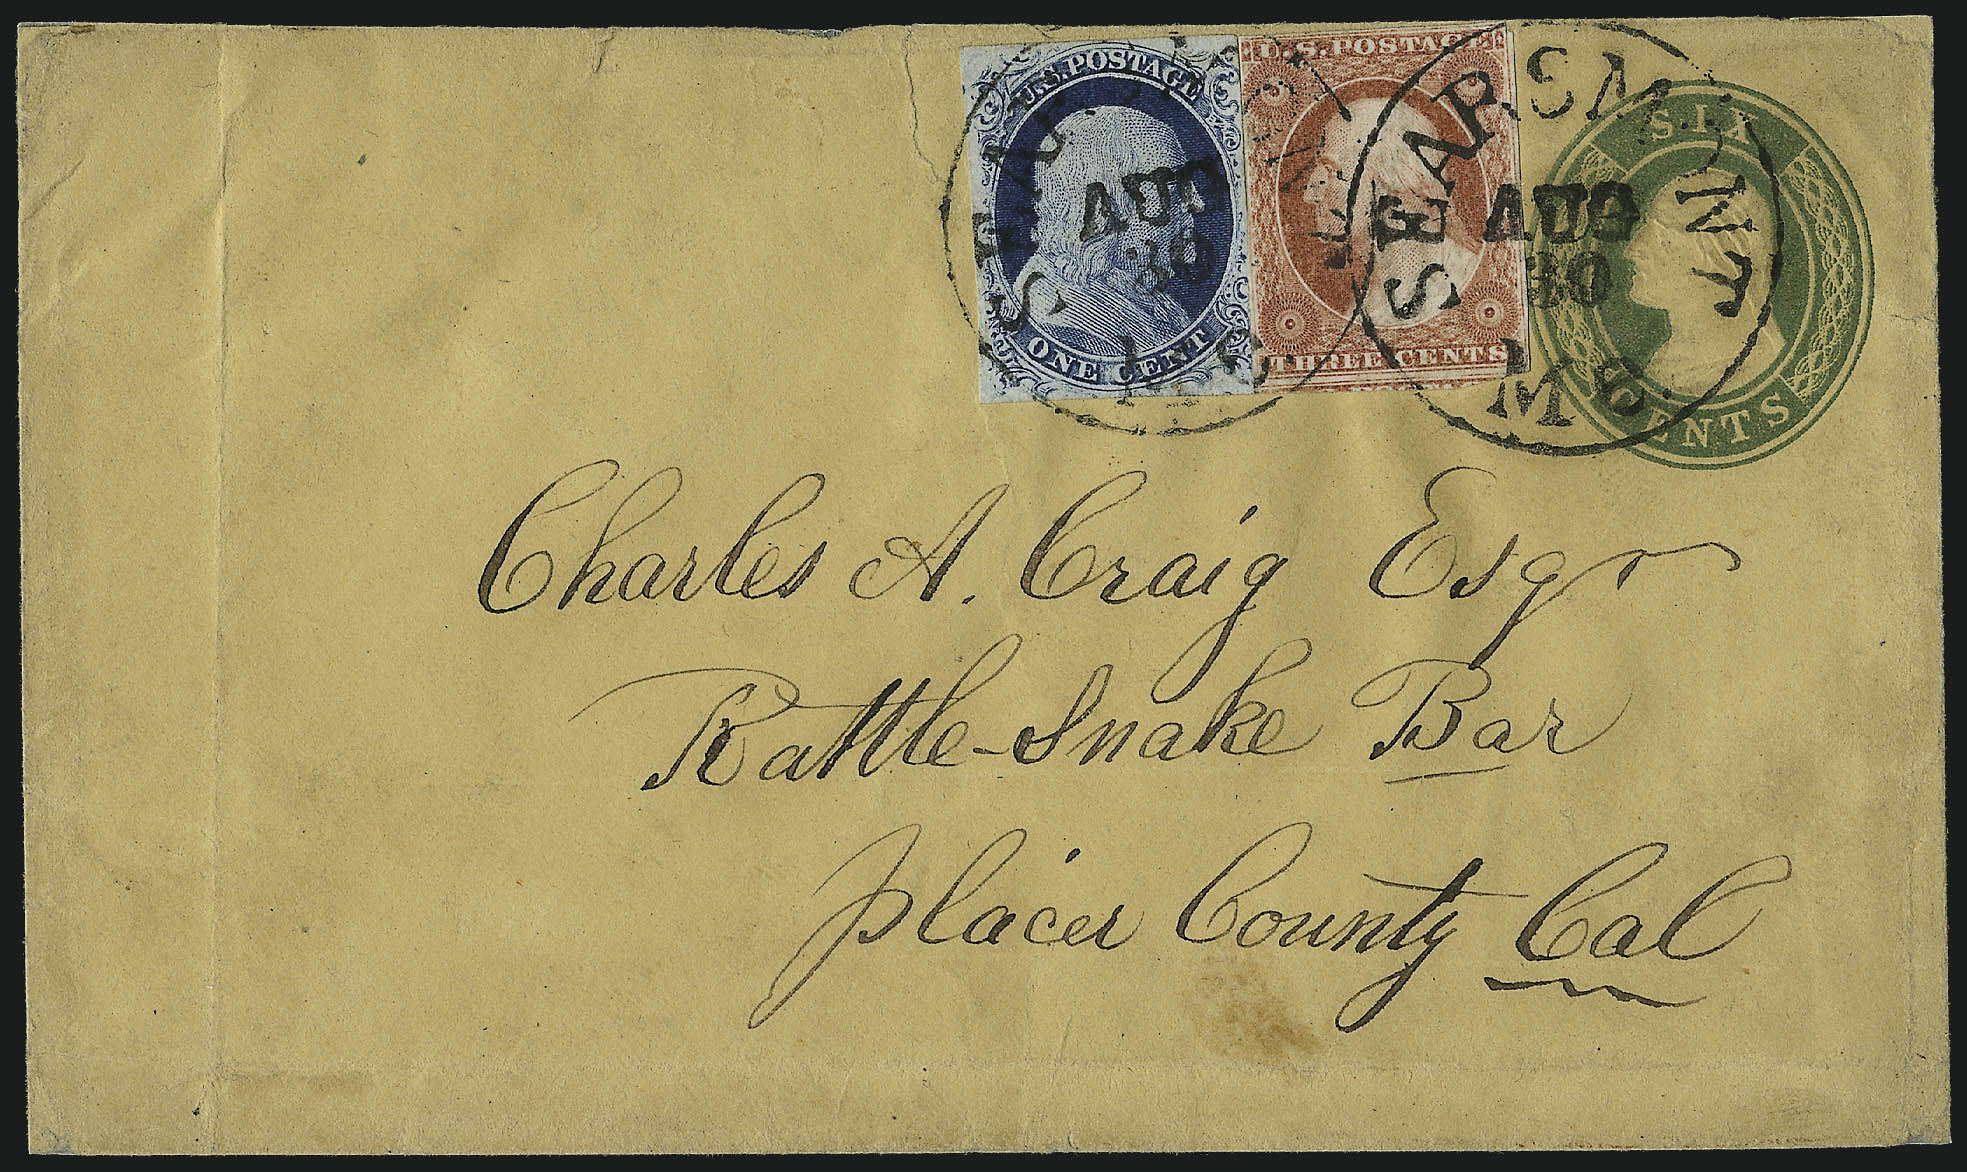 U.S.POSTAGE
ONE CENT
U.S.POSTAGE
THREE CENTS
SIX
CENTS
SEARSMONT
AUG
30
Me.
SEARSMONT
AUG
30
Me.
Charles A. Craig Esqr
Rattle-Snake Bar
Placer County Cal